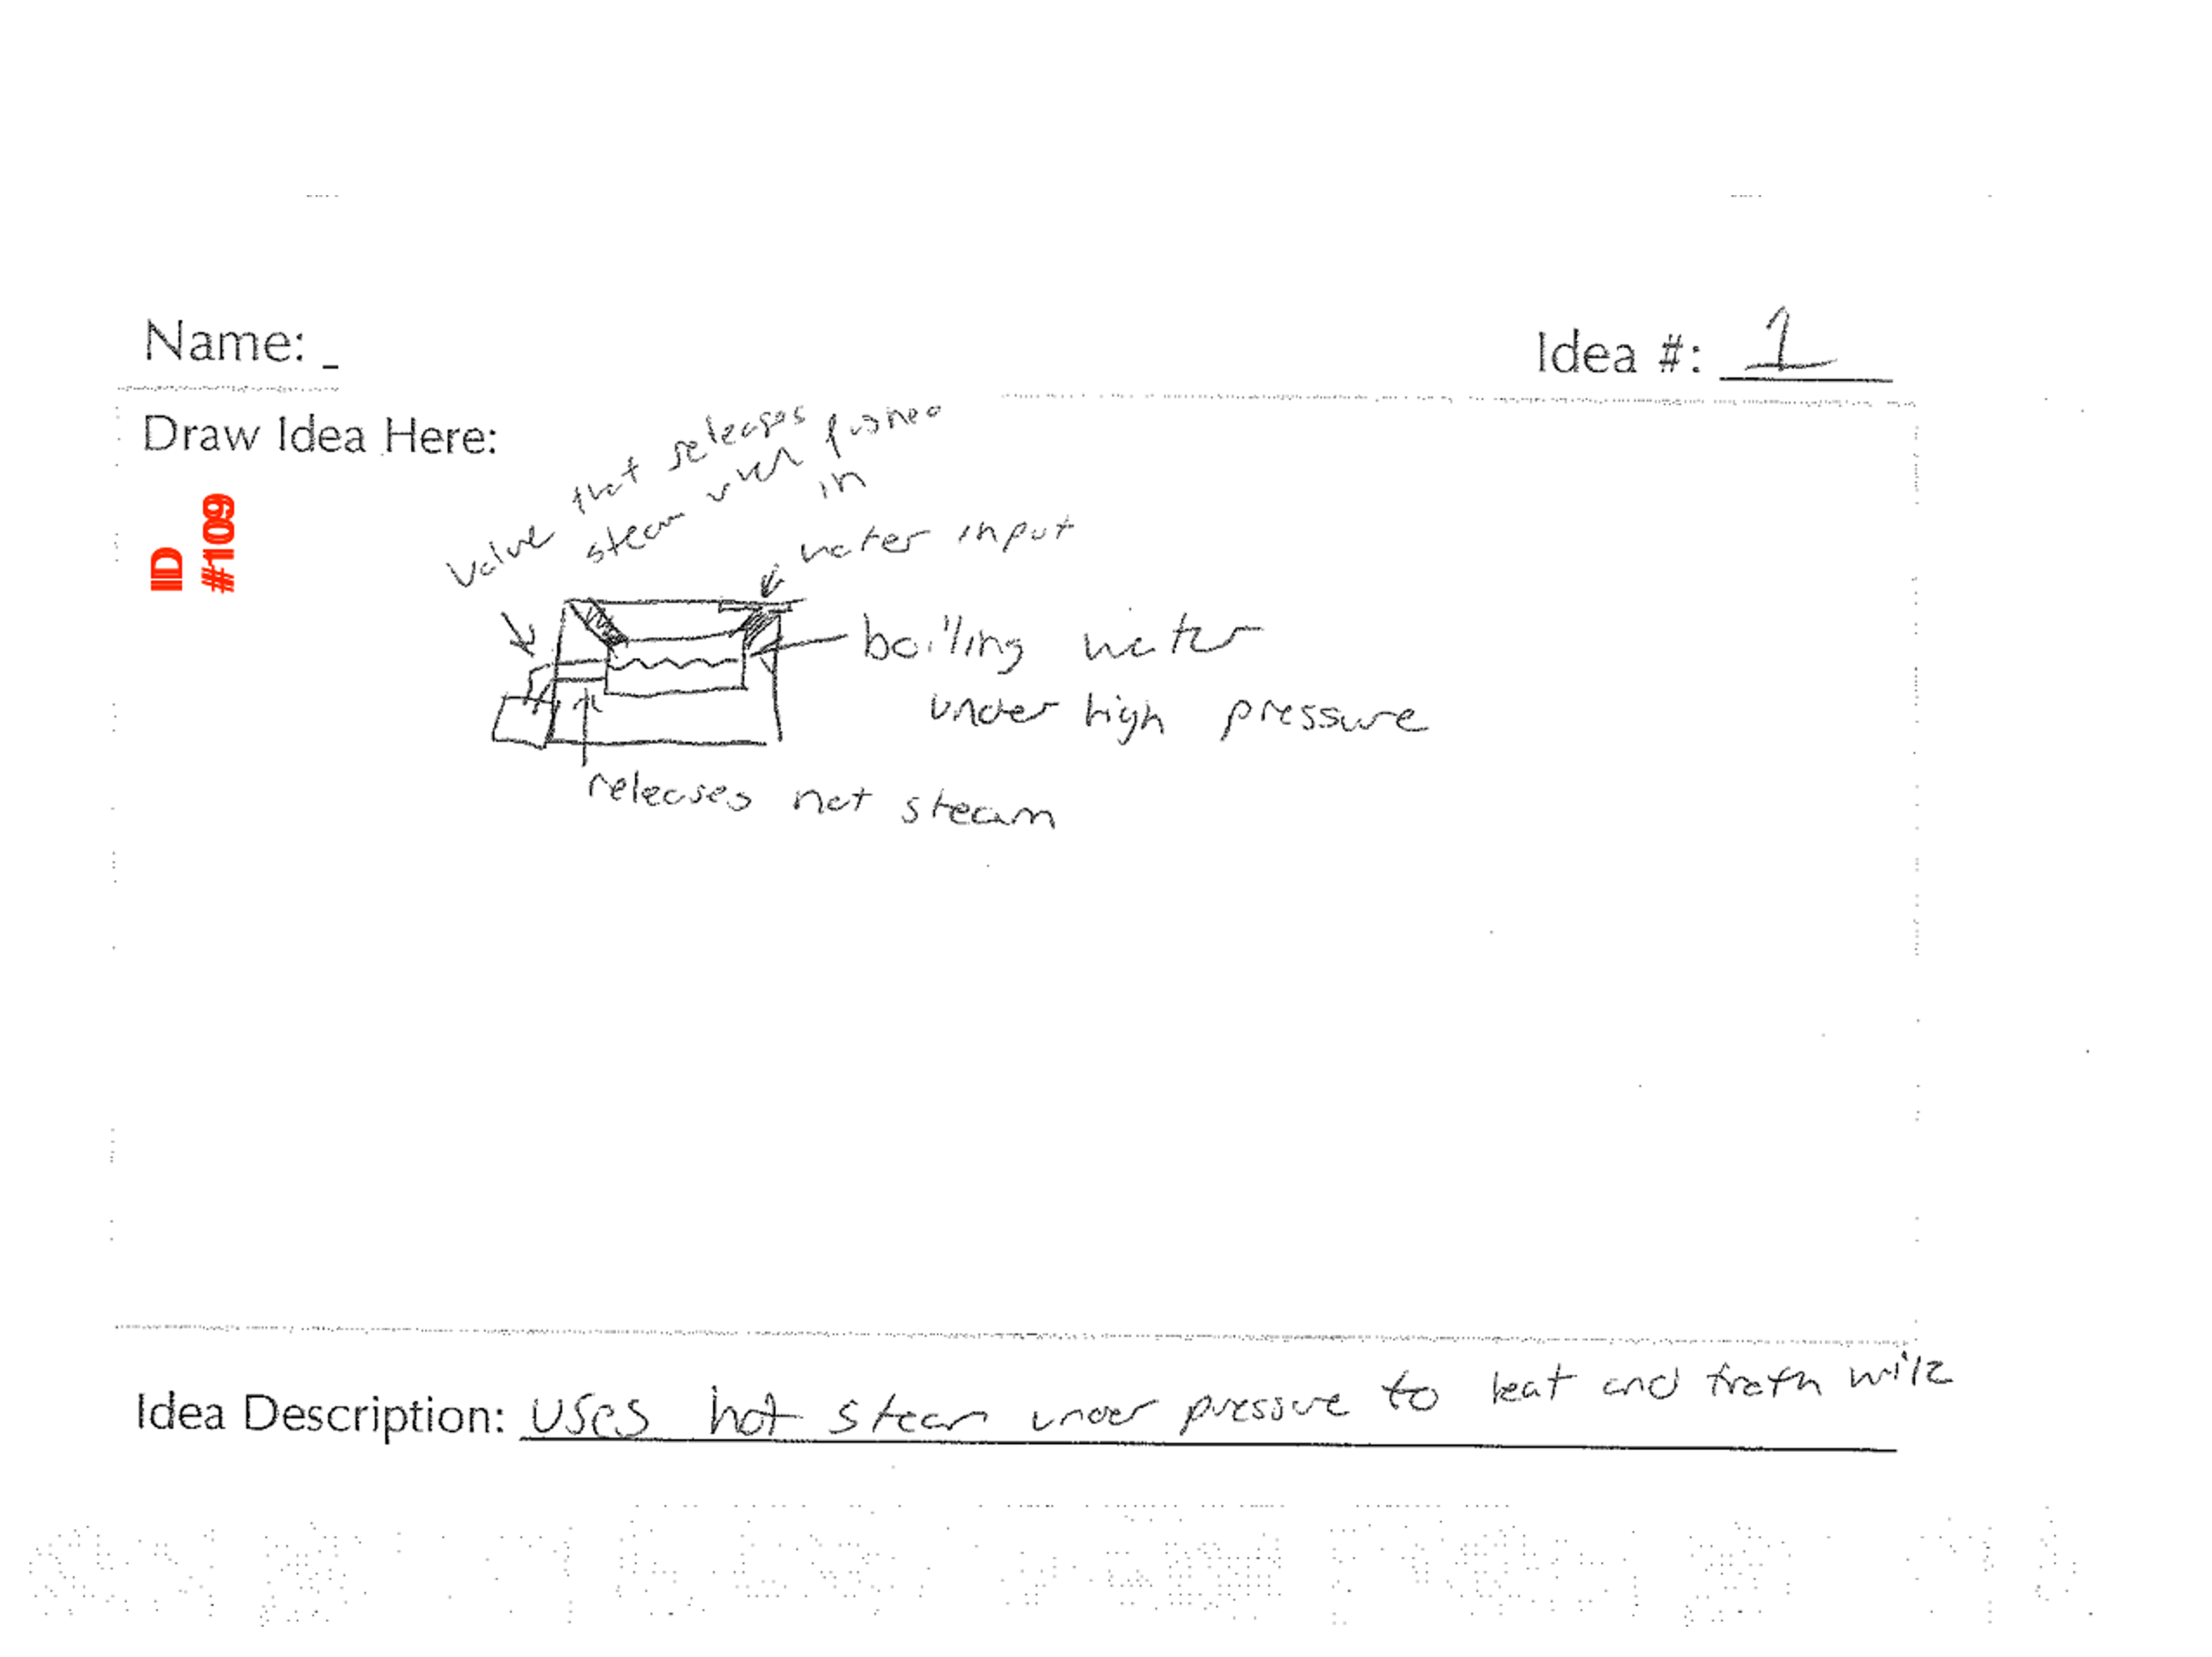 Name:
Idea #: 1
Draw Idea Here:
ID
#109
Valve that releases
steam when pushed
in
water input
boiling water
under high pressure
releases hot steam
Idea Description: uses hot steam under pressure to heat and froth milk